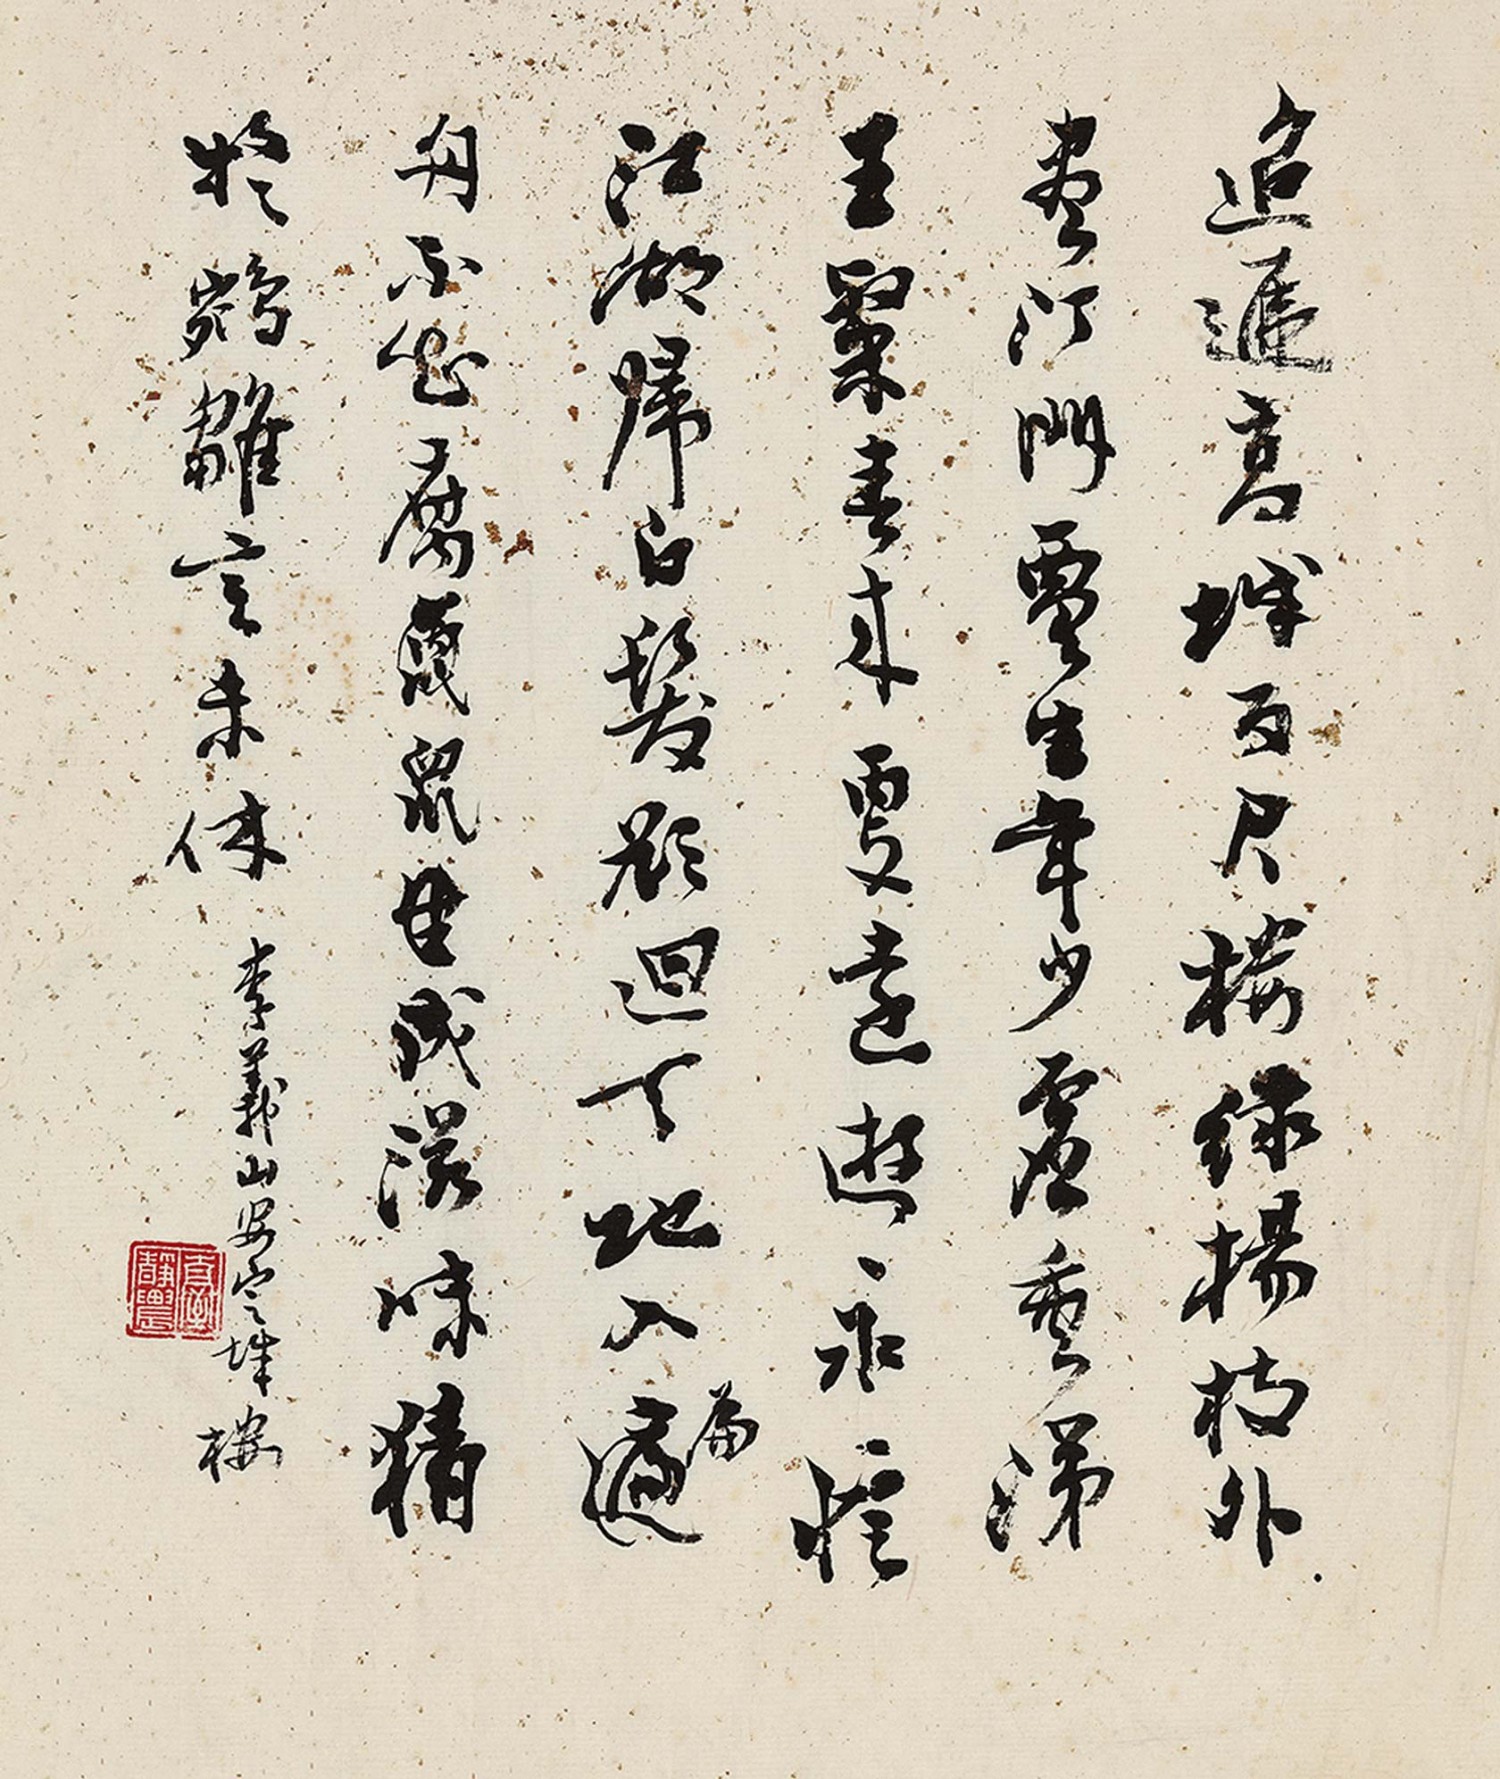 迢遞高城百尺樓綠楊枝外
盡汀門賈生年少虛垂涕
王粲春來更遠遊永憶
江湖歸白髮欲迴天地入適
扁
舟不知腐鼠成滋味猜
於鵷雛意未休
李義山安定城樓
臺靜農